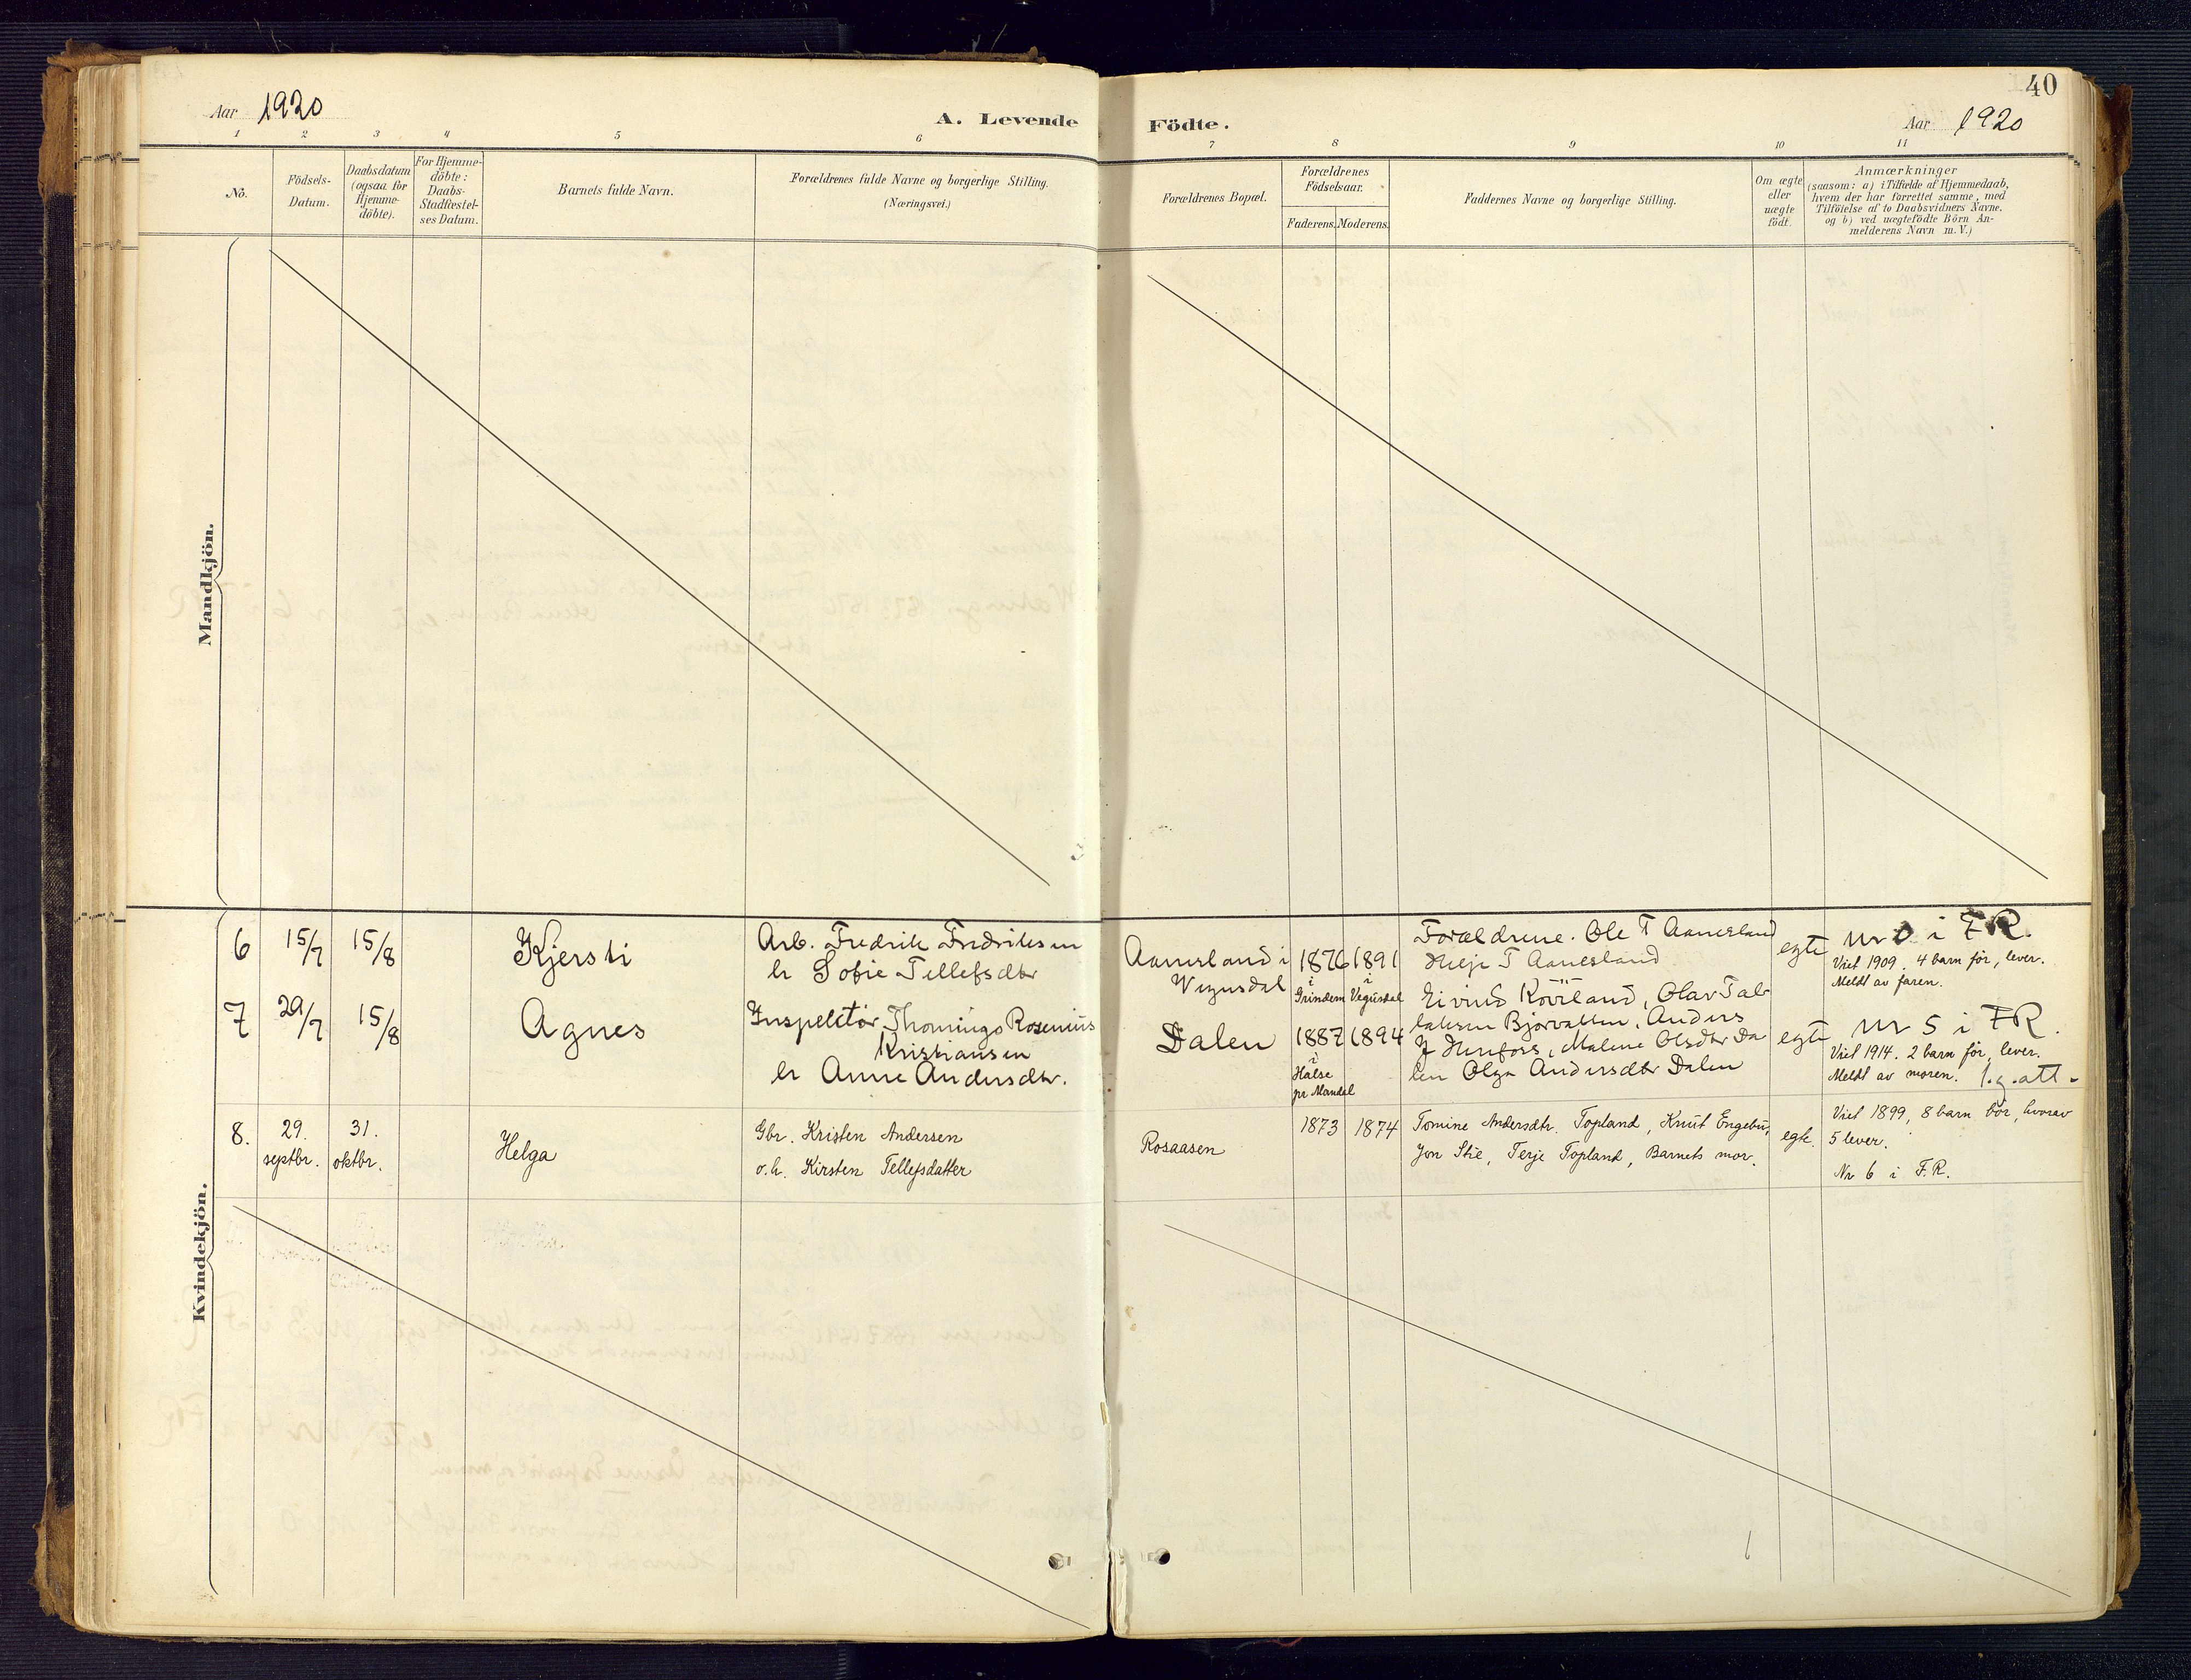 40
Aar 1920
A. Levende Födte.
Aar 1920
1 2 3 4 5 6 7 8 9 10 11
No.
Födsels-
Datum.
Daabsdatum
(ogsaa for
Hjemme-
döbte).
For Hjemme-
döbte:
Daabs-
Stadfæstel-
ses Datum.
Barnets fulde Navn.
Forældrenes fulde Navne og borgerlige Stilling.
(Næringsvei.)
Forældrenes Bopæl.
Forældrenes
Födselsaar.
Faderens. Moderens.
Faddernes Navne og borgerlige Stilling.
Om ægte
eller
uægte
födt.
Anmærkninger
(saasom: a) i Tilfælde af Hjemmedaab,
hvem der har forrettet samme, med
Tilföielse af to Daabsvidners Navne.
og b) ved uægtefödte Börn An-
melderens Navn m.V.)
Mandkjön.
Kvindekjön.
6
15/7
15/8
Kjersti
Arb. Fredrik Fredriksen
Sofie Tellefsdtr
Aanesland i
Vegusdal
1876 1891
i Grindem
i Vegusdal
Forældrene. Ole T Aanesland
T Aanesland
egte
nr i FR.
Viet 1909. 4 barn før, lever.
Meldt av faren.
7
29/7
15/8
Agnes
Inspektör Thomings Rosenius
Kristiansen
Anne Andersdtr.
Dalen
1887 1894
i Halse
pr Mandal
Eivind Olav
Anders
Malene Olsdtr Da
len Olga Andersdtr Dalen
egte
nr 5 i FR.
Viet 1914. 2 barn før, lever.
Meldt av moren. l.g.att.
8.
29.
septbr.
31.
oktbr.
Helga
Gbr. Kristen Andersen
o.h. Kirsten Tellefsdatter
Rosaasen
1873 1874
Tomine Andersdtr. Topland, Knut Engebu,
Jon Stie, Terje Topland, Barnets mor.
egte.
Viet 1899, 8 barn før, hvorav
5 lever.
Nr 6 i F.R.